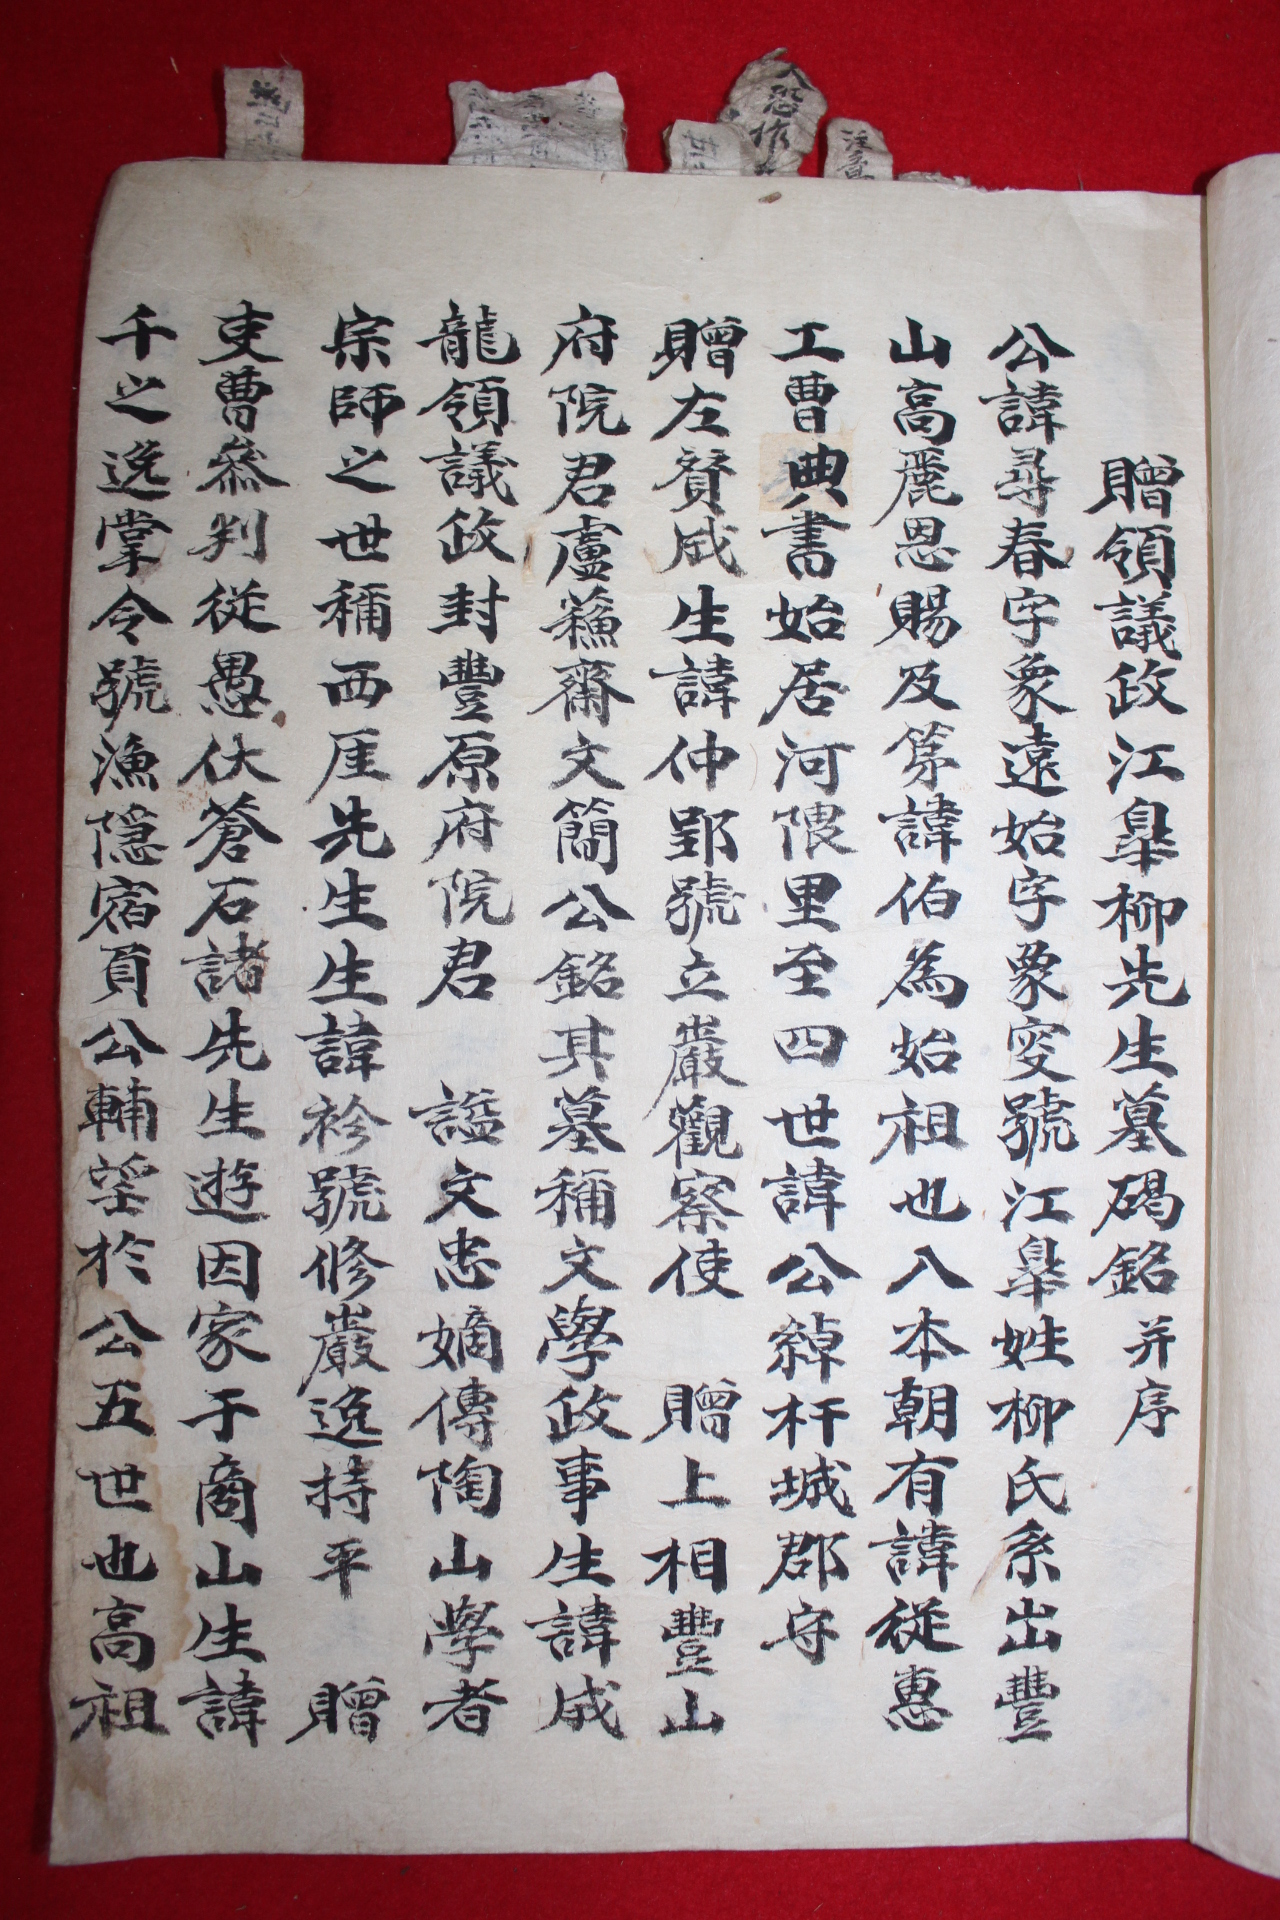 贈領議政江皐柳先生墓碣銘 并序
公諱尋春字象遠始字象叟號江皐姓柳氏系出豐
山高麗恩賜及第諱伯為始祖也入本朝有諱從惠
工曹典書始居河隈里至四世諱公綽杆城郡守
贈左贊成生諱仲郢號立巖觀察使 贈上相豐山
府院君盧蘓齋文簡公銘其墓稱文學政事生諱成
龍領議政封豐原府院君 謚文忠嫡傳陶山學者
宗師之世稱西厓先生生諱袗號修巖逸持平 贈
吏曹叅判從愚伏蒼石諸先生遊因家于商山生諱
千之逸掌令號漁隱宿負公輔望於公五世也高祖